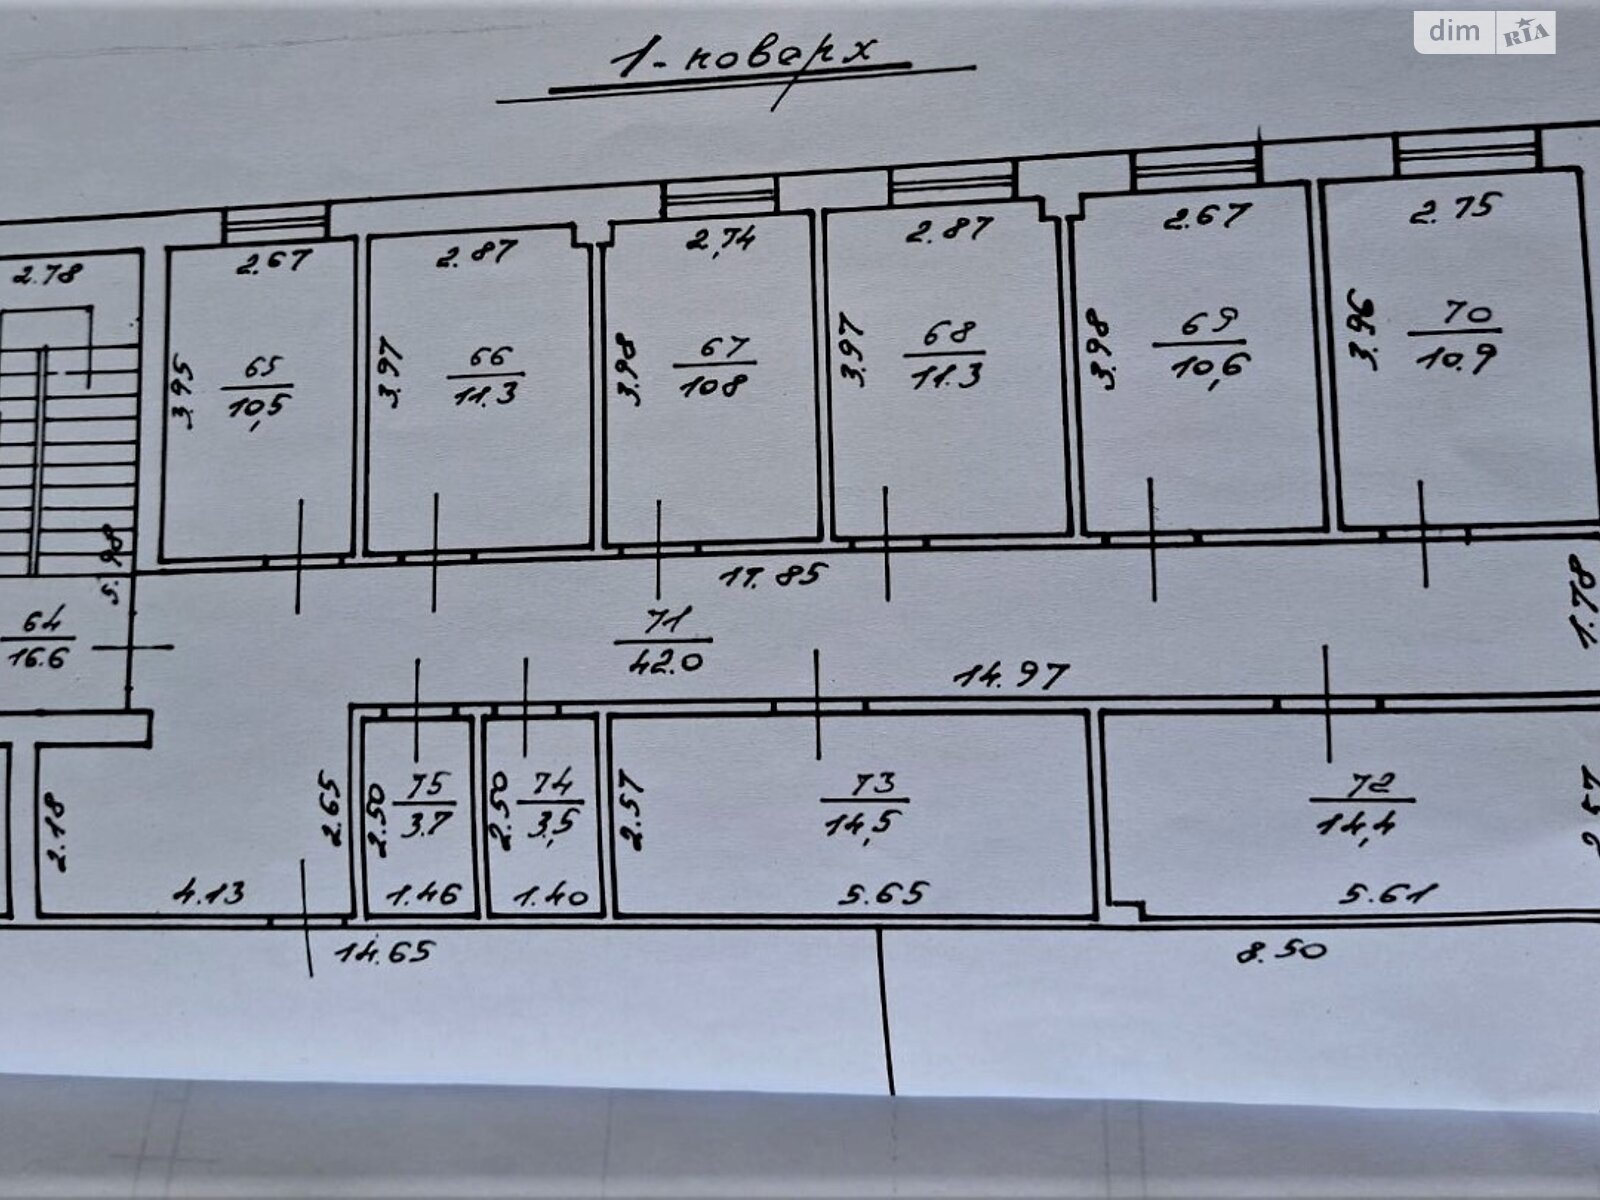 dim RIA
1-поверх
2.78
2.67
2.87
2,74
2.87
2.67
2.75
3.95
65
10,5
3.97
66
11.3
3.98
67
108
3.97
68
11.3
3.98
69
10,6
3.96
70
10.9
5.98
17.85
1.78
64
16.6
71
42.0
14.97
2.18
2.65
2.50
75
3.7
2.50
74
3,5
2.57
73
14,5
72
14,4
2.57
4.13
1.46
1.40
5.65
5.61
14.65
8.50